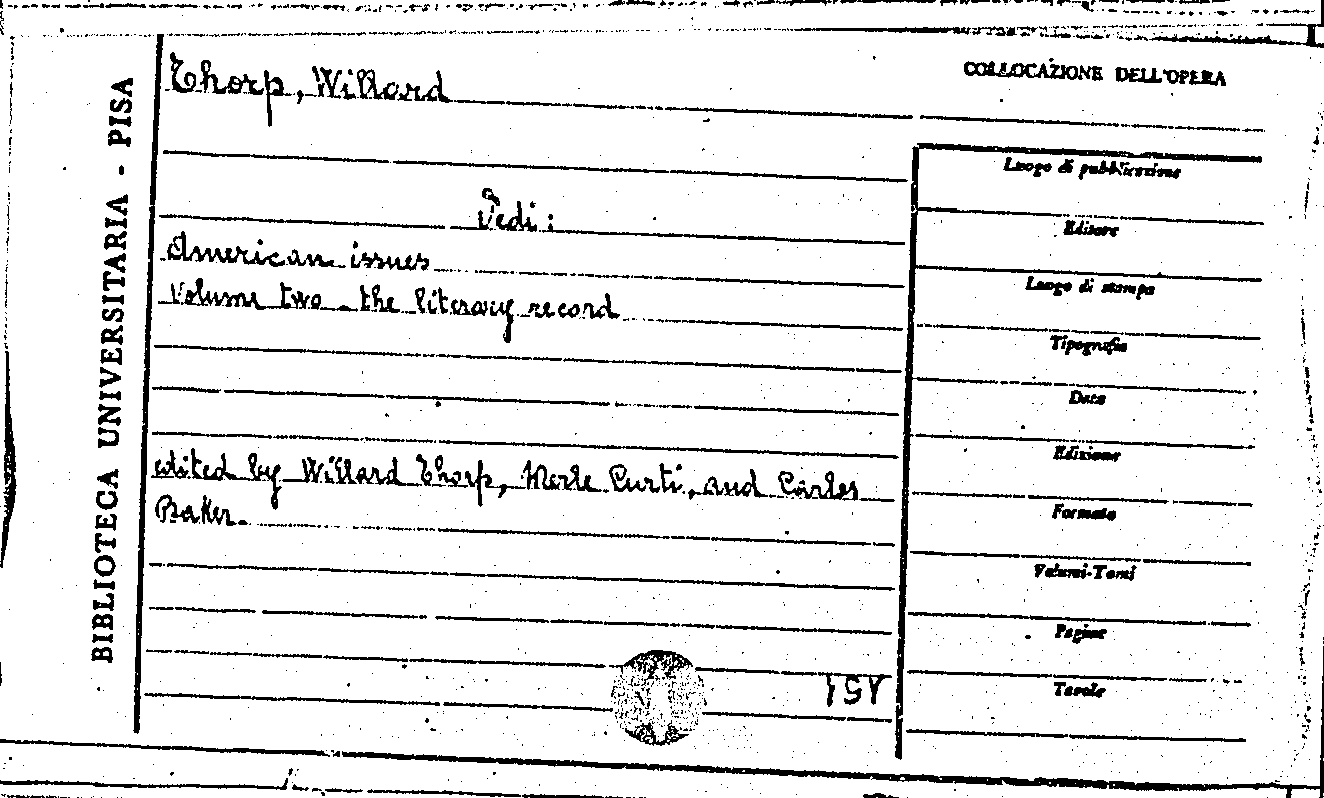 Thorp, Willard
COLLOCAZIONE DELL'OPERA
BIBLIOTECA UNIVERSITARIA - PISA
Vedi:
American issues
Volume two - the literary record
edited by Willard Thorp, Merle Curti, and Carlos
Baker.
Luogo di pubblicazione
Editore
Luogo di stampa
Tipografia
Data
Edizione
Formato
Volumi-Tomi
Pagine
Tavole